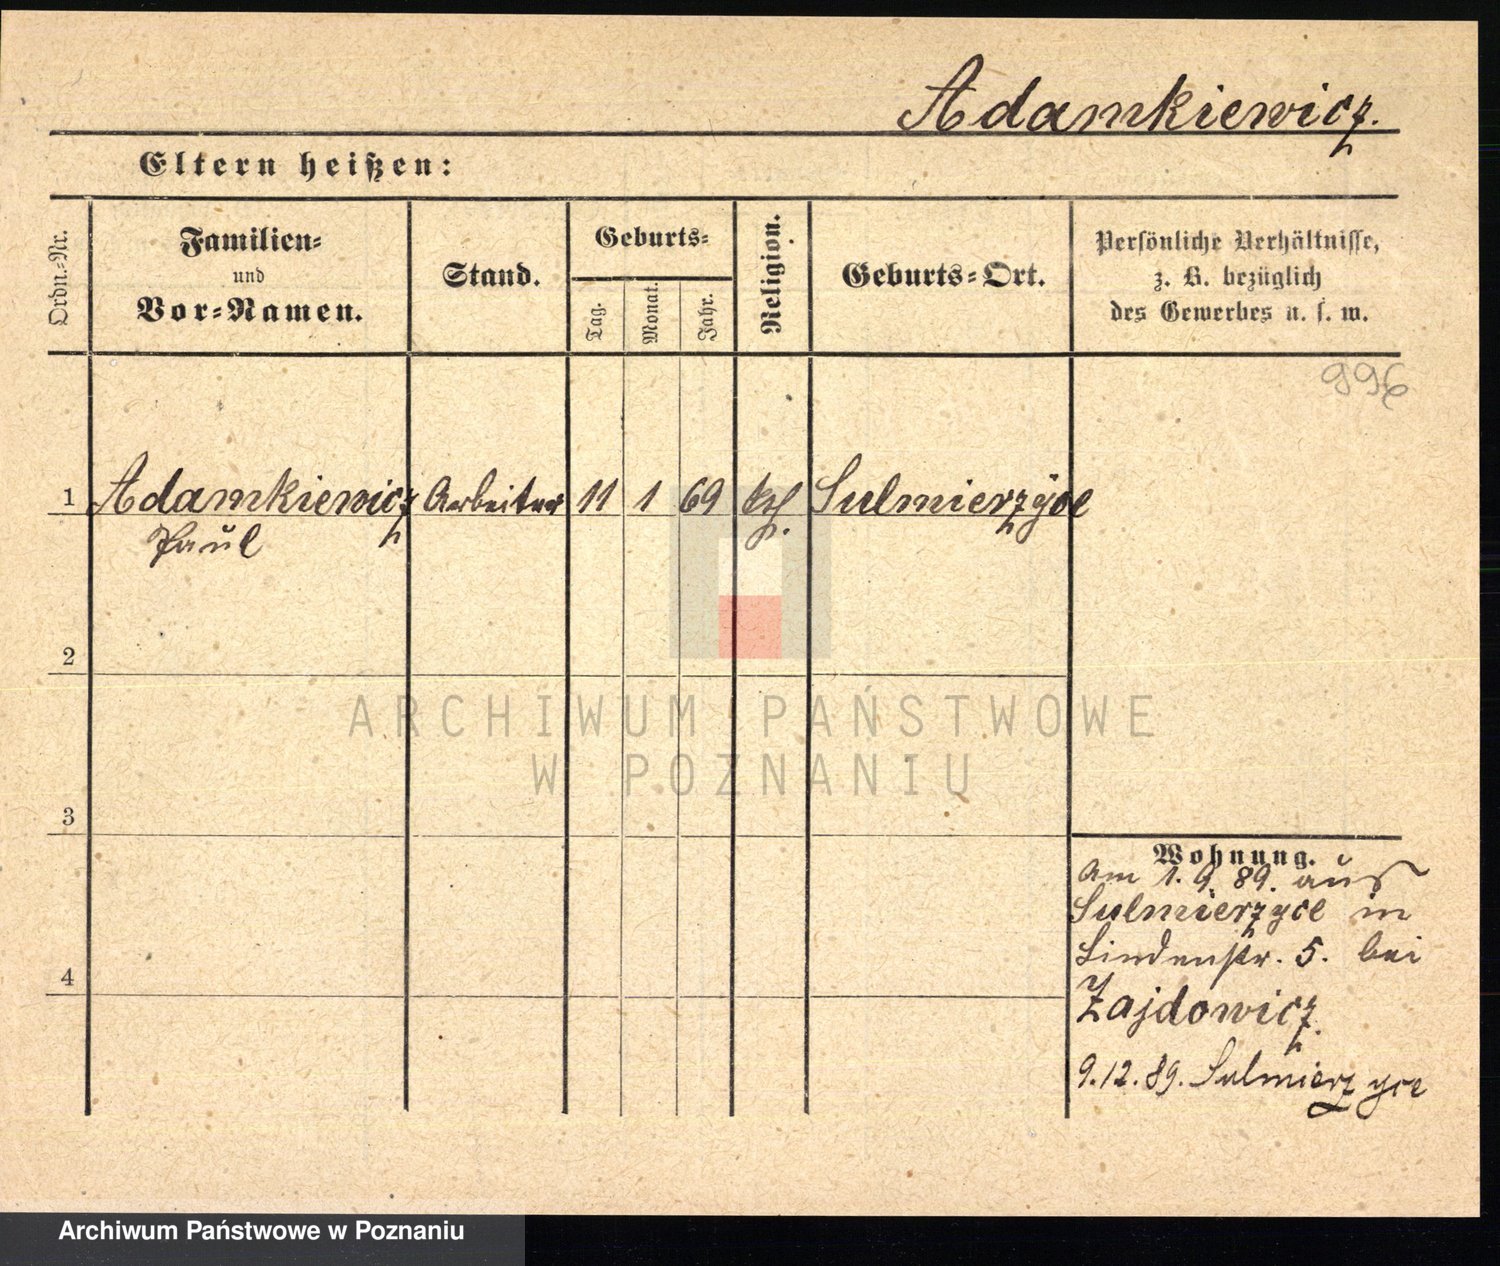 Adamkiewicz.
Eltern heißen:
Ordn.-Nr.
Familien-
und
Vor-Namen.
Stand.
Geburts-
Tag.
Monat.
Jahr.
Religion.
Geburts-Ort.
Persönliche Verhältnisse,
z. B. bezüglich
des Gewerbes u. s. w.
996
1 Adamkiewicz Arbeiter 11 1 69 kth. Sulmierzyce
Paul
2
3
4
Wohnung.
Am 1. 9. 89. aus
Sulmierzyce in
Lindenstr. 5. bei
Zajdowicz.
9. 12. 89. Sulmierzyce
ARCHIWUM PAŃSTWOWE
W POZNANIU
Archiwum Państwowe w Poznaniu